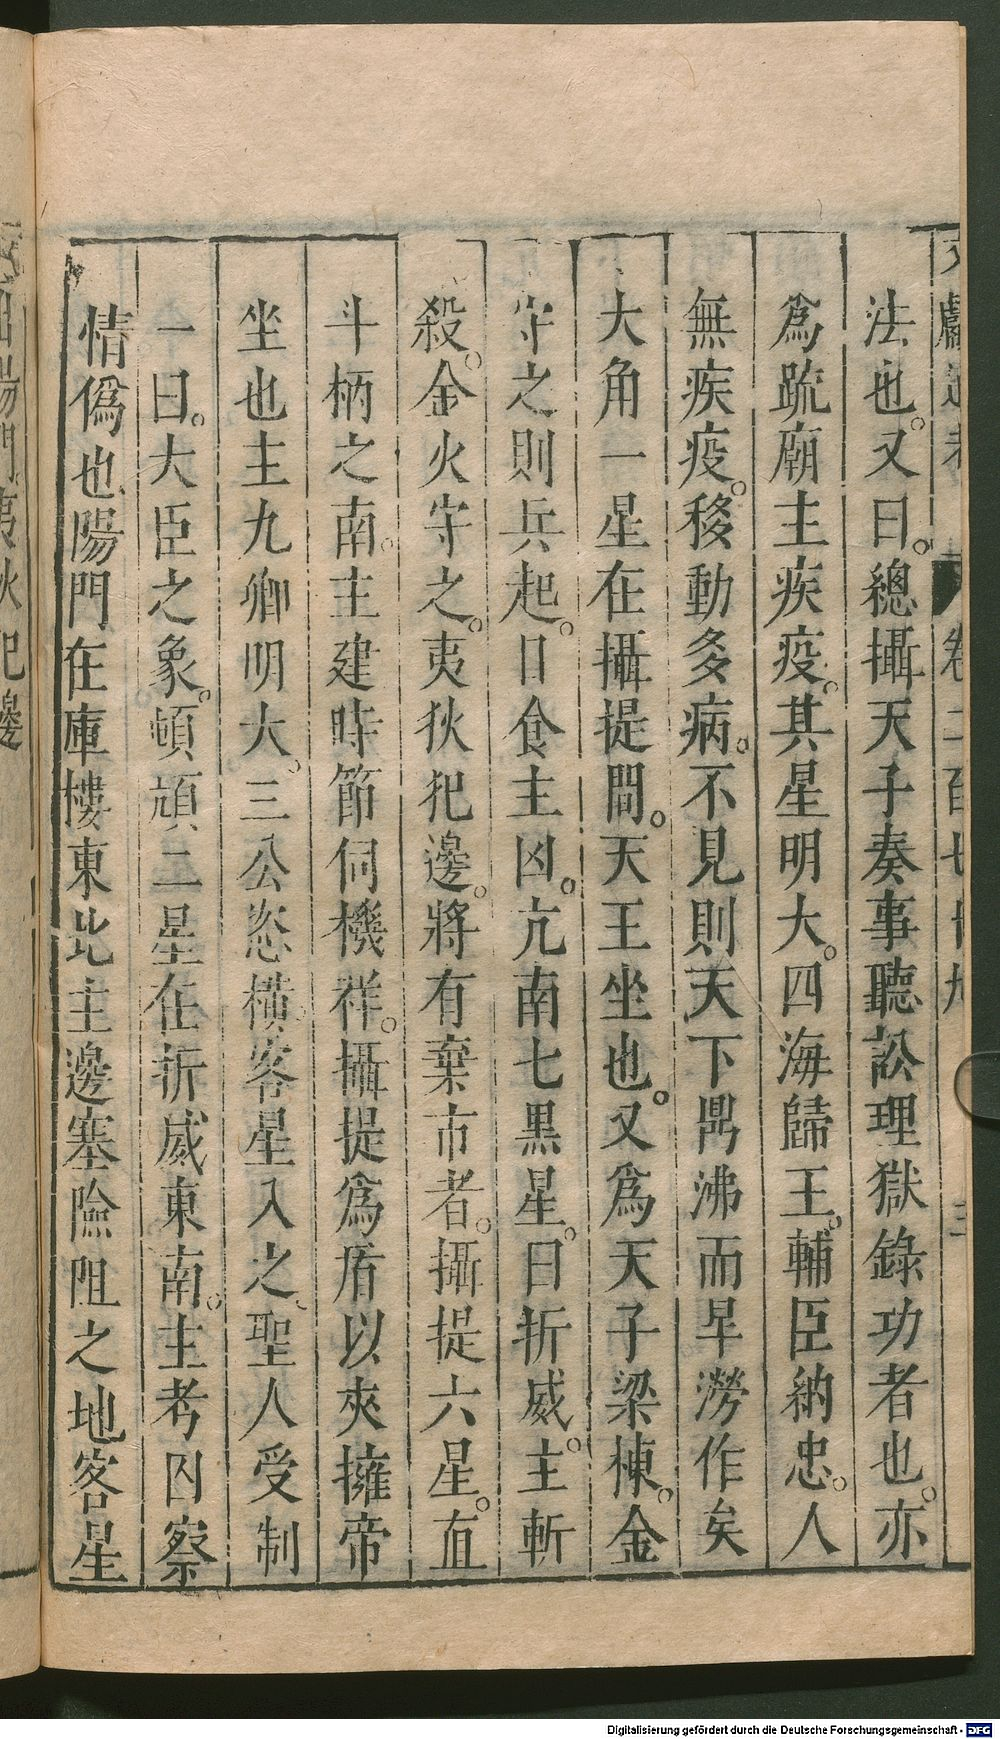 法也。又曰。總攝天子奏事聽訟理獄錄功者也。亦
爲䟽廟主疾疫。其星明大。四海歸王。輔臣納忠。人
無疾疫。移動多病。不見則天下鼎沸而旱澇作矣
大角一星在攝提間。天王坐也。又爲天子梁棟。金
守之則兵起。日食主凶。亢南七黑星。曰折威。主斬
殺。金火守之。夷狄犯邊。將有棄市者。攝提六星。直
斗柄之南。主建時節伺機祥。攝提爲盾以夾擁帝
坐也主九卿明大、三公恣横、客星入之、聖人受制
一曰。大臣之象。頓頑二星在折威東南。主考囚察
情僞也、陽門在庫樓東北主邊塞險阻之地客星
卷二百七十九
三
夷狄犯邊
Digitalisierung gefördert durch die Deutsche Forschungsgemeinschaft - DFG